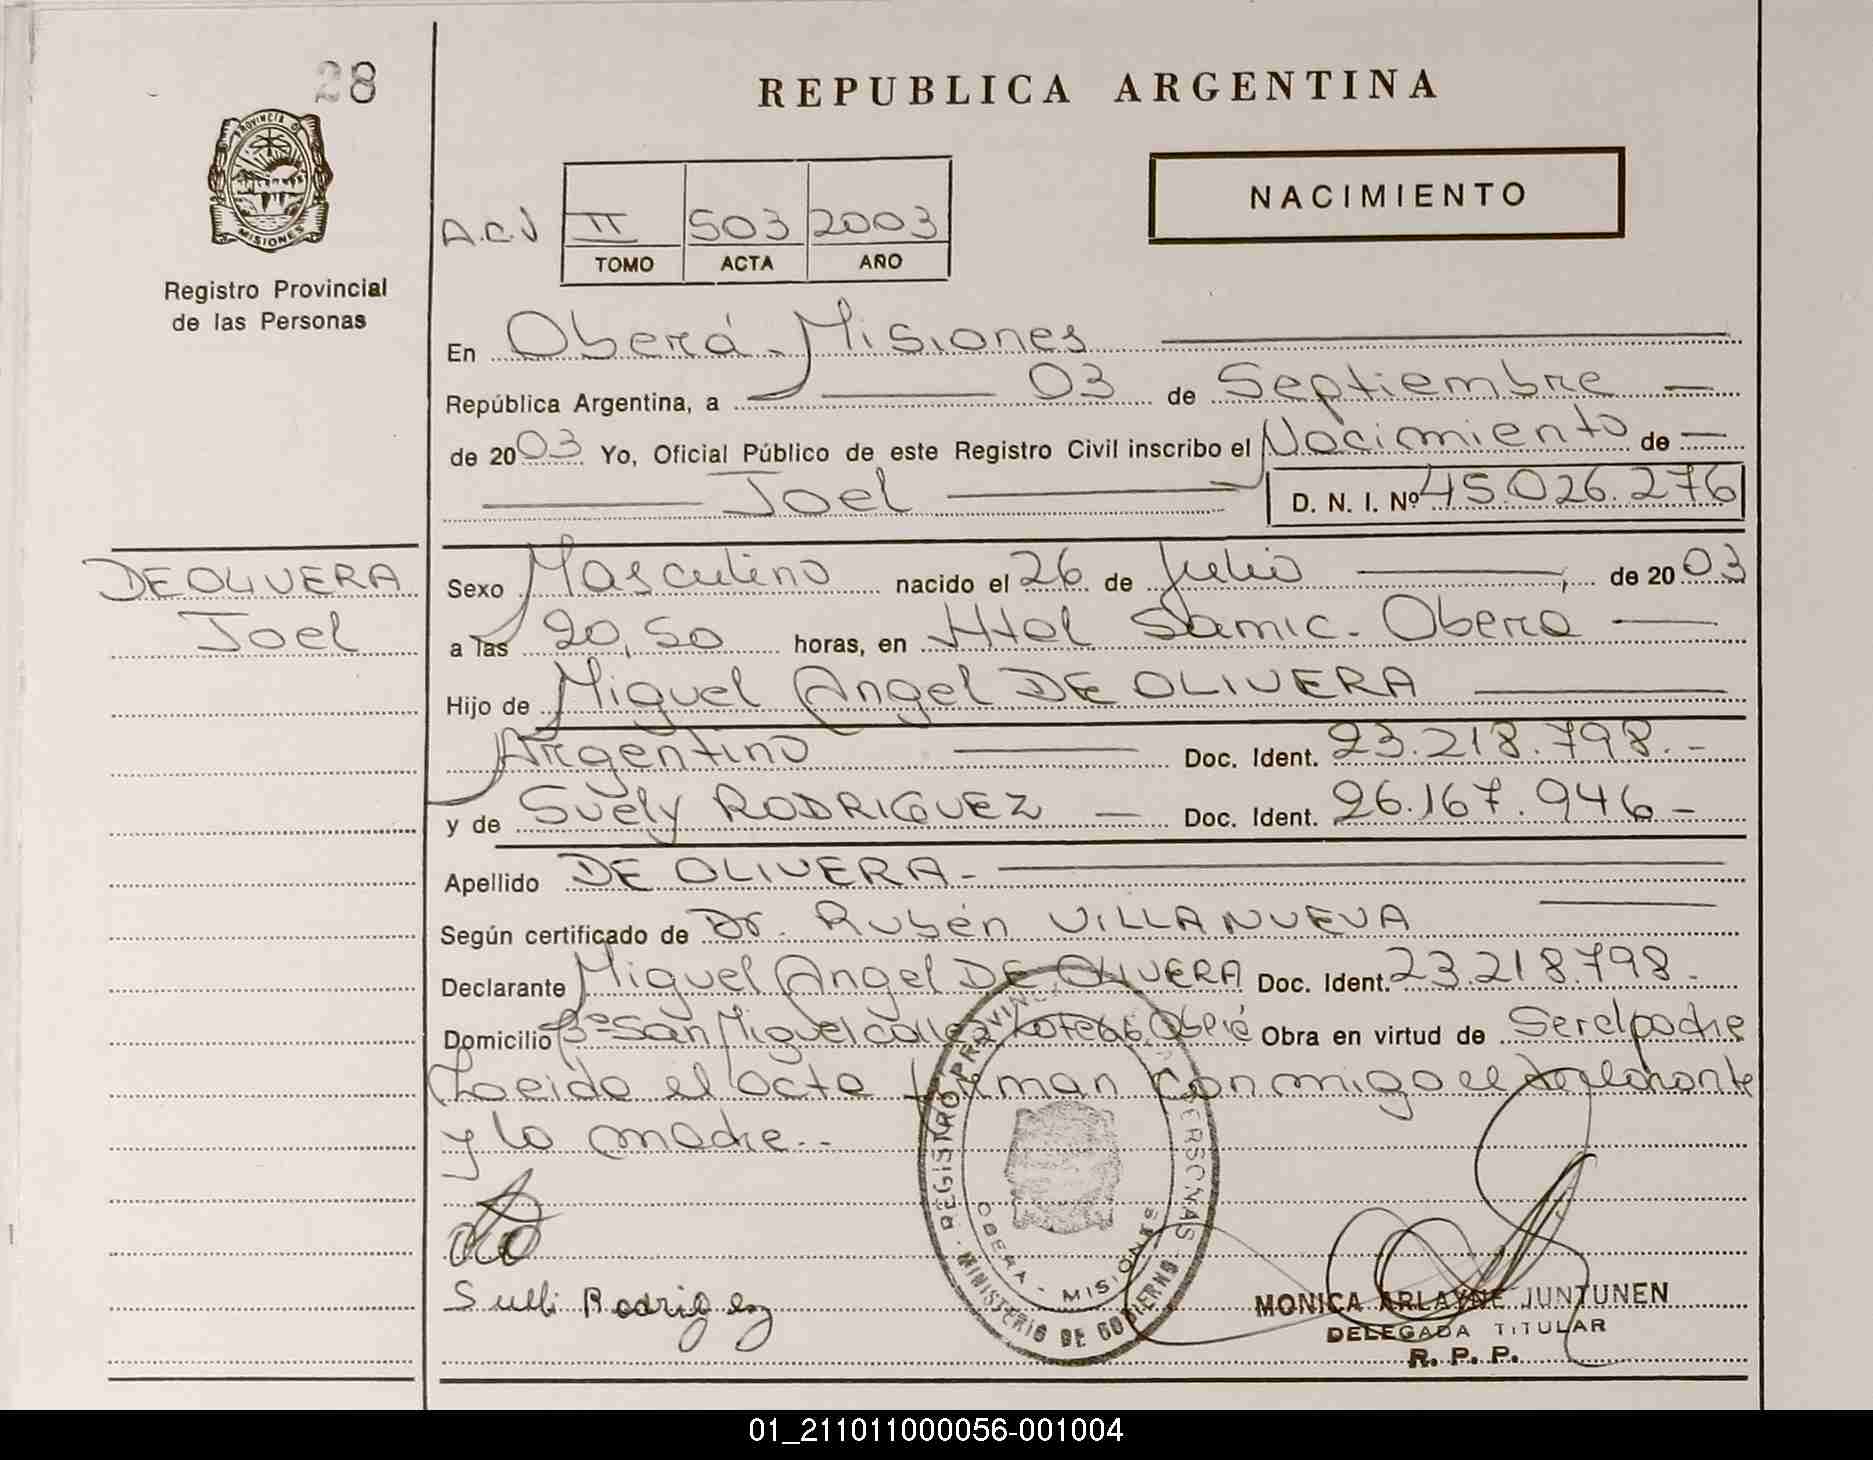 28
REPUBLICA ARGENTINA
PROVINCIA D
MISIONES
Registro Provincial
de las Personas
NACIMIENTO
A.C.J II 503 2003
TOMO ACTA AÑO
En Oberá - Misiones
República Argentina, a 03 de Septiembre
de 2003 Yo, Oficial Público de este Registro Civil inscribo el Nacimiento de
Joel D. N. I. Nº 45.026.276
DE OLIVERA
Joel
Sexo Masculino nacido el 26 de Julio, de 2003
a las 20,50 horas, en Htal Samic - Obera
Hijo de Miguel Angel DE OLIVERA
Argentino Doc. Ident. 23.218.798.-
y de Suely RODRIGUEZ Doc. Ident. 26.167.946-
Apellido DE OLIVERA-
Según certificado de Dr. Rubén VILLANUEVA
Declarante Miguel Angel DE OLIVERA Doc. Ident. 23.218.798.
Domicilio Bº San Miguel calle Lote 66 Oberá Obra en virtud de Ser el padre
Leida el acta firman conmigo el declarante
y la madre.-
REGISTRO PROVINCIAL PERSONAS
MINISTERIO DE GOBIERNO
OBERA - MISIONES
Sulli Rodrigez
MONICA ARLAYNE JUNTUNEN
DELEGADA TITULAR
R. P. P.
01_211011000056-001004